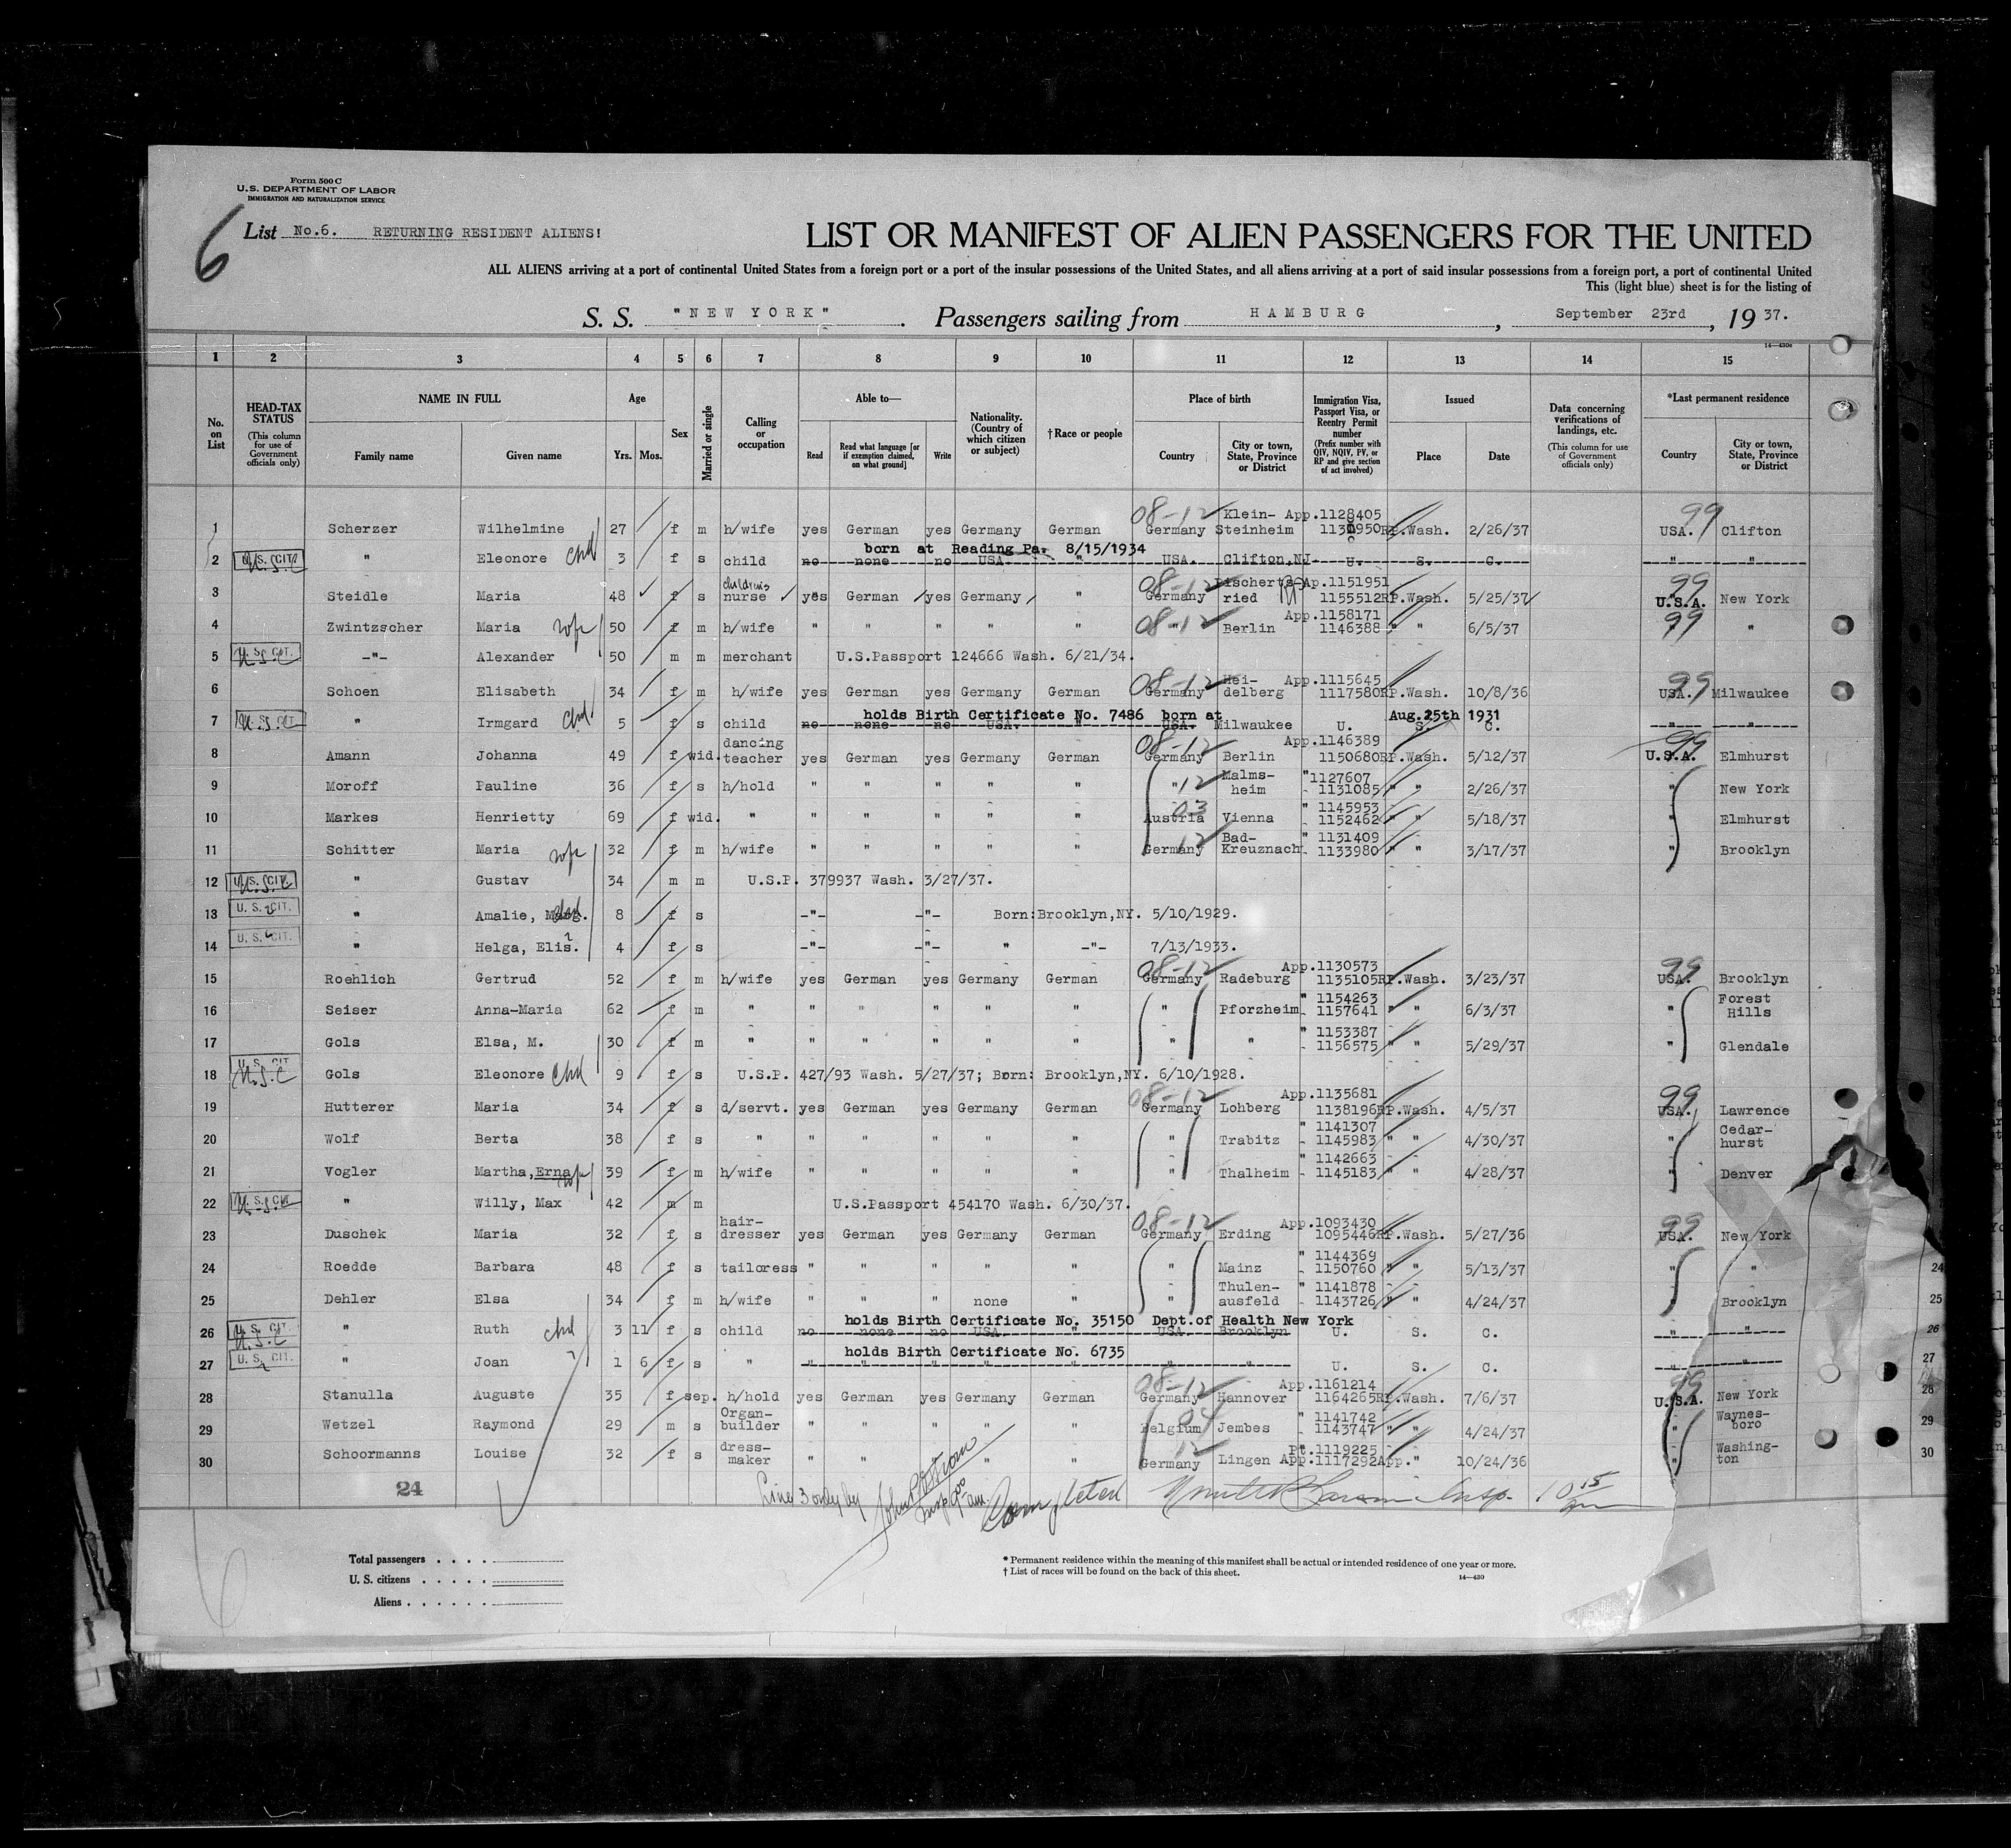 Form 500 C
U.S. DEPARTMENT OF LABOR
IMMIGRATION AND NATURALIZATION SERVICE
6
List No.6. RETURNING RESIDENT ALIENS!
LIST OR MANIFEST OF ALIEN PASSENGERS FOR THE UNITED
ALL ALIENS arriving at a port of continental United States from a foreign port or a port of the insular possessions of the United States, and all aliens arriving at a port of said insular possessions from a foreign port, a port of continental United
This (light blue) sheet is for the listing of
S. S. "NEW YORK" . Passengers sailing from HAMBURG , September 23rd , 19 37.
14—430c
1 2 3 4 5 6 7 8 9 10 11 12 13 14 15
No. on List
HEAD-TAX STATUS (This column for use of Government officials only)
NAME IN FULL Family name Given name
Age Yrs. Mos.
Sex
Married or single
Calling or occupation
Able to— Read Read what language [or if exemption claimed, on what ground] Write
Nationality. (Country of which citizen or subject)
†Race or people
Place of birth Country City or town, State, Province or District
Immigration Visa, Passport Visa, or Reentry Permit number (Prefix number with QIV, NQIV, PV, or RP and give section of act involved)
Issued Place Date
Data concerning verifications of landings, etc. (This column for use of Government officials only)
*Last permanent residence Country City or town, State, Province or District
08-12 Klein- App.1128405 99
1 Scherzer Wilhelmine 27 f m h/wife yes German yes Germany German Germany Steinheim RP.Wash. 2/26/37 USA. Clifton
born at Reading Pa. 8/15/1934
2 U.S. CIT. " Eleonore chd 3 f s child no none no USA. " USA. Clifton,NJ U. S. C. " "
children's 08-12 Ap.1151951 99
3 Steidle Maria 48 f s nurse yes German yes Germany " Germany ried 1155512RP.Wash. 5/25/37 U.S.A. New York
08-12 App.1158171 99
4 Zwintzscher Maria 50 f m h/wife " " " " " " Berlin 1146388 " " 6/5/37 "
5 U.S. CIT. -"- Alexander 50 m m merchant U.S.Passport 124666 Wash. 6/21/34.
08-12 Hei- App.1115645 99
6 Schoen Elisabeth 34 f m h/wife yes German yes Germany German Germany delberg 1117580RP.Wash. 10/8/36 USA. Milwaukee
holds Birth Certificate No. 7486 born at Aug.25th 1931
7 U.S. CIT. " Irmgard chd 5 f s child no none no USA. " USA. Milwaukee U. S. C. " "
dancing 08-12 App.1146389 99
8 Amann Johanna 49 f wid. teacher yes German yes Germany German Germany Berlin 1150680RP.Wash. 5/12/37 U.S.A. Elmhurst
12 Malms- "1127607
9 Moroff Pauline 36 f s h/hold " " " " " " heim 1131085 " " 2/26/37 " New York
03 " 1145953
10 Markes Henrietty 69 f wid. " " " " " " Austria Vienna 1152462 " " 5/18/37 " Elmhurst
12 Bad- " 1131409
11 Schitter Maria 32 f m h/wife " " " " " Germany Kreuznach 1133980 " " 3/17/37 " Brooklyn
12 U.S. CIT. " Gustav 34 m m U.S.P. 379937 Wash. 3/27/37.
13 U.S. CIT. " Amalie, 8 f s -"- -"- Born:Brooklyn,NY. 5/10/1929.
14 U.S. CIT. " Helga, Elis. 4 f s -"- -"- " -"- 7/13/1933.
08-12 App.1130573 99
15 Roehlich Gertrud 52 f m h/wife yes German yes Germany German Germany Radeburg 1135105RP.Wash. 3/23/37 USA. Brooklyn
" 1154263 Forest
16 Seiser Anna-Maria 62 f m " " " " " " " Pforzheim 1157641 " " 6/3/37 " Hills
" 1153387
17 Gols Elsa, M. 30 f m " " " " " " " " 1156575 " " 5/29/37 " Glendale
18 U.S. CIT Gols Eleonore chd 9 f s U.S.P. 427/93 Wash. 5/27/37; Born: Brooklyn,NY. 6/10/1928.
08-12 App.1135681 99
19 Hutterer Maria 34 f s d/servt. yes German yes Germany German Germany Lohberg 1138196RP.Wash. 4/5/37 USA. Lawrence
" 1141307 Cedar-
20 Wolf Berta 38 f s " " " " " " " Trabitz 1145983 " " 4/30/37 " hurst
" 1142663
21 Vogler Martha,Erna 39 f m h/wife " " " " " " Thalheim 1145183 " " 4/28/37 " Denver
22 U.S. CIT. " Willy, Max 42 m m U.S.Passport 454170 Wash. 6/30/37.
hair- 08-12 App.1093430 99
23 Duschek Maria 32 f s dresser yes German yes Germany German Germany Erding 1095446RP.Wash. 5/27/36 USA. New York
" 1144369
24 Roedde Barbara 48 f s tailoress " " " " " " Mainz 1150760 " " 5/13/37 " " 24
Thulen- " 1141878
25 Dehler Elsa 34 f m h/wife " " " none " " ausfeld 1143726 " " 4/24/37 " Brooklyn 25
holds Birth Certificate No. 35150 Dept.of Health New York
26 U.S. CIT. " Ruth chd 3 11 f s child no none no USA " USA. Brooklyn U. S. C. " " 26
holds Birth Certificate No. 6735
27 U.S. CIT. " Joan 1 6 f s " " " " " " " " U. S. C. " " 27
08-12 App.1161214 99
28 Stanulla Auguste 35 f sep. h/hold yes German yes Germany German Germany Hannover 1164265RP.Wash. 7/6/37 U.S.A. New York 28
Organ- 04 " 1141742 Waynes-
29 Wetzel Raymond 29 m s builder " " " " " Belgium Jembes 1143747 " " 4/24/37 " boro 29
dress- 12 Pt.1119225 Washing-
30 Schoormanns Louise 32 f s maker " " " " " Germany Lingen App.1117292App." 10/24/36 " ton 30
24
Line 3 only by
Completed
Insp. 10 15
Total passengers . . . .
U. S. citizens . . . . .
Aliens . . . . . .
* Permanent residence within the meaning of this manifest shall be actual or intended residence of one year or more.
† List of races will be found on the back of this sheet.
14—430